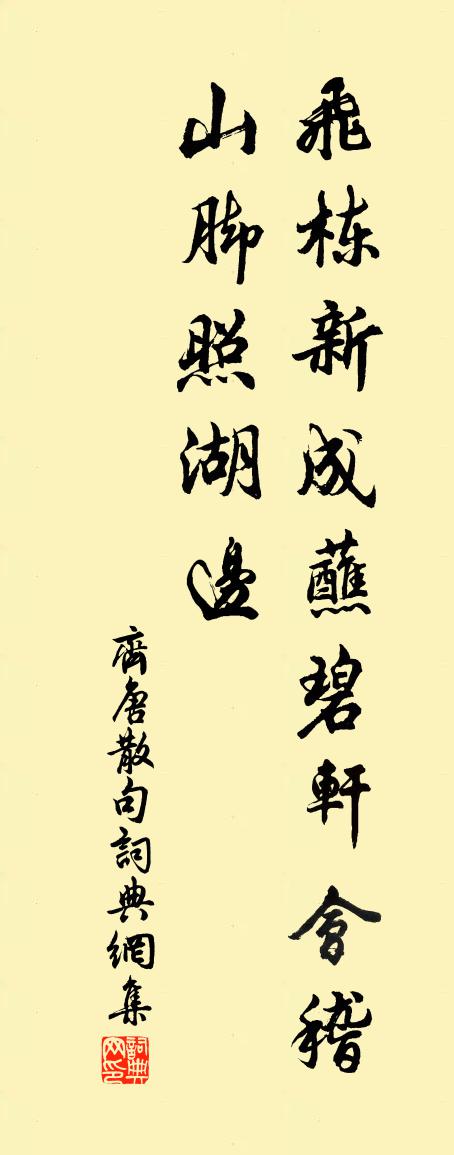 飛栋新成蘸碧軒會稽
山脚照湖邊
齊唐散句詞典網集
詞典网印